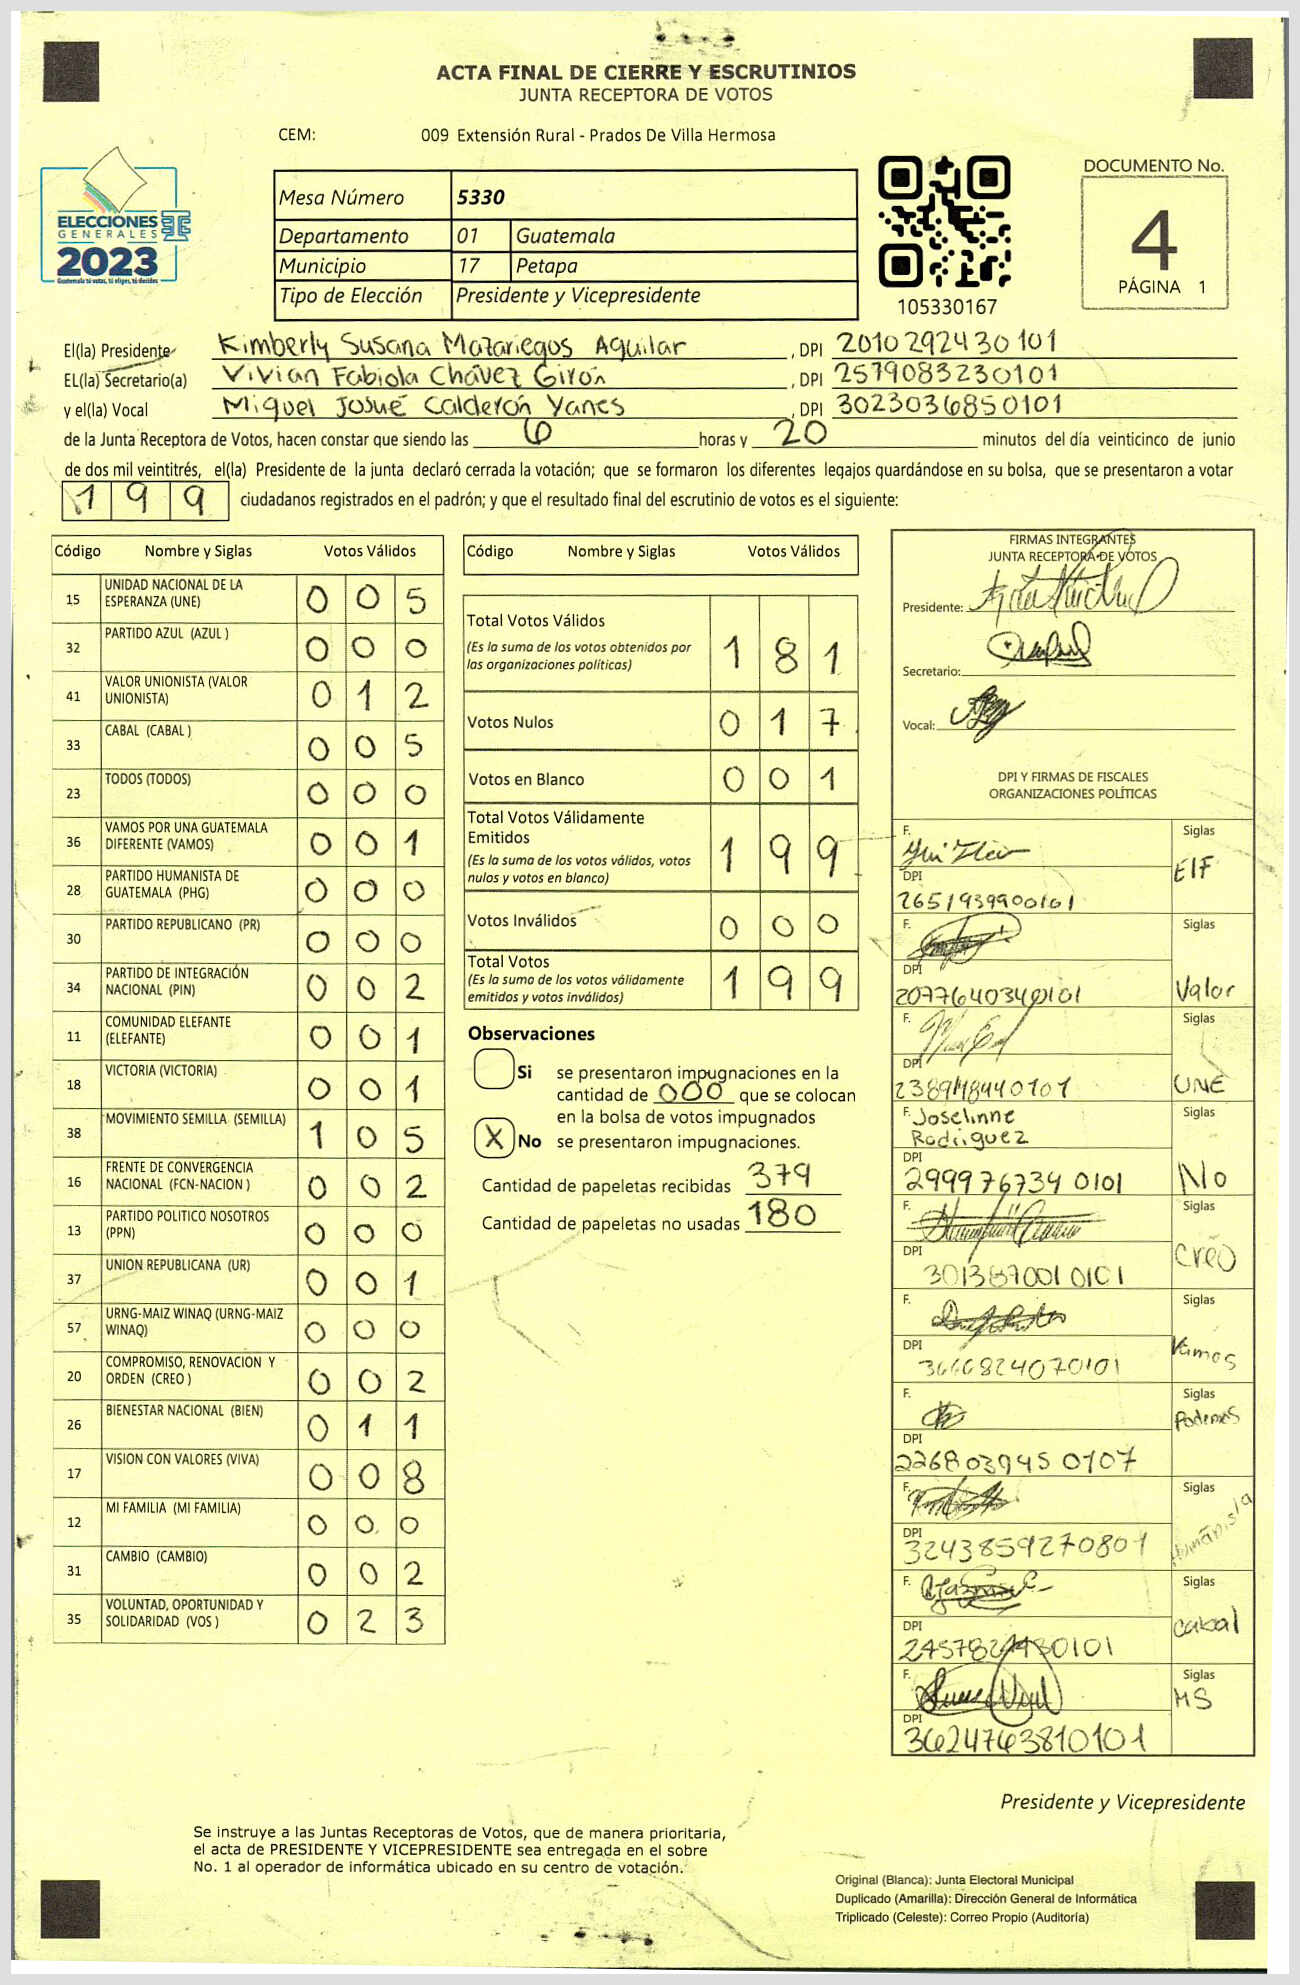 ACTA FINAL DE CIERRE Y ESCRUTINIOS
JUNTA RECEPTORA DE VOTOS
CEM: 009 Extensión Rural - Prados De Villa Hermosa
ELECCIONES
GENERALES
2023
Guatemala tú votas, tú eliges, tú decides
Mesa Número 5330
Departamento 01 Guatemala
Municipio 17 Petapa
Tipo de Elección Presidente y Vicepresidente
105330167
DOCUMENTO No.
4
PÁGINA 1
El(la) Presidente Kimberly Susana Mazariegos Aguilar , DPI 2010292430101
EL(la) Secretario(a) Vivian Fabiola Chávez Girón , DPI 2579083230101
y el(la) Vocal Miguel Josué Calderón Yanes , DPI 3023036850101
de la Junta Receptora de Votos, hacen constar que siendo las 6 horas y 20 minutos del día veinticinco de junio
de dos mil veintitrés, el(la) Presidente de la junta declaró cerrada la votación; que se formaron los diferentes legajos guardándose en su bolsa, que se presentaron a votar
199 ciudadanos registrados en el padrón; y que el resultado final del escrutinio de votos es el siguiente:
Código Nombre y Siglas Votos Válidos
15 UNIDAD NACIONAL DE LA ESPERANZA (UNE) 0 0 5
32 PARTIDO AZUL (AZUL ) 0 0 0
41 VALOR UNIONISTA (VALOR UNIONISTA) 0 1 2
33 CABAL (CABAL ) 0 0 5
23 TODOS (TODOS) 0 0 0
36 VAMOS POR UNA GUATEMALA DIFERENTE (VAMOS) 0 0 1
28 PARTIDO HUMANISTA DE GUATEMALA (PHG) 0 0 0
30 PARTIDO REPUBLICANO (PR) 0 0 0
34 PARTIDO DE INTEGRACIÓN NACIONAL (PIN) 0 0 2
11 COMUNIDAD ELEFANTE (ELEFANTE) 0 0 1
18 VICTORIA (VICTORIA) 0 0 1
38 MOVIMIENTO SEMILLA (SEMILLA) 1 0 5
16 FRENTE DE CONVERGENCIA NACIONAL (FCN-NACION ) 0 0 2
13 PARTIDO POLITICO NOSOTROS (PPN) 0 0 0
37 UNION REPUBLICANA (UR) 0 0 1
57 URNG-MAIZ WINAQ (URNG-MAIZ WINAQ) 0 0 0
20 COMPROMISO, RENOVACION Y ORDEN (CREO ) 0 0 2
26 BIENESTAR NACIONAL (BIEN) 0 1 1
17 VISION CON VALORES (VIVA) 0 0 8
12 MI FAMILIA (MI FAMILIA) 0 0 0
31 CAMBIO (CAMBIO) 0 0 2
35 VOLUNTAD, OPORTUNIDAD Y SOLIDARIDAD (VOS ) 0 2 3
Código Nombre y Siglas Votos Válidos
Total Votos Válidos
(Es la suma de los votos obtenidos por
las organizaciones políticas) 1 8 1
Votos Nulos 0 1 7
Votos en Blanco 0 0 1
Total Votos Válidamente
Emitidos
(Es la suma de los votos válidos, votos
nulos y votos en blanco) 1 9 9
Votos Inválidos 0 0 0
Total Votos
(Es la suma de los votos válidamente
emitidos y votos inválidos) 1 9 9
Observaciones
Si se presentaron impugnaciones en la
cantidad de 000 que se colocan
en la bolsa de votos impugnados
X No se presentaron impugnaciones.
Cantidad de papeletas recibidas 379
Cantidad de papeletas no usadas 180
FIRMAS INTEGRANTES
JUNTA RECEPTORA DE VOTOS
Presidente:
Secretario:
Vocal:
DPI Y FIRMAS DE FISCALES
ORGANIZACIONES POLÍTICAS
F. Siglas
EIF
DPI
2651939900101
F. Siglas
DPI
2077640340101 Valor
F. Siglas
DPI
238948440101 UNE
F. Joselinne Siglas
Rodriguez
DPI
2999767340101 No
F. Siglas
DPI Creo
3013870010101
F. Siglas
DPI Vamos
3666824070101
F. Siglas
Podemos
DPI
2268039450107
F. Siglas
DPI Humanista
3243859270801
F. Siglas
DPI cabal
2457824930101
F. Siglas
MS
DPI
3624763810101
Presidente y Vicepresidente
Se instruye a las Juntas Receptoras de Votos, que de manera prioritaria,
el acta de PRESIDENTE Y VICEPRESIDENTE sea entregada en el sobre
No. 1 al operador de informática ubicado en su centro de votación.
Original (Blanca): Junta Electoral Municipal
Duplicado (Amarilla): Dirección General de Informática
Triplicado (Celeste): Correo Propio (Auditoría)